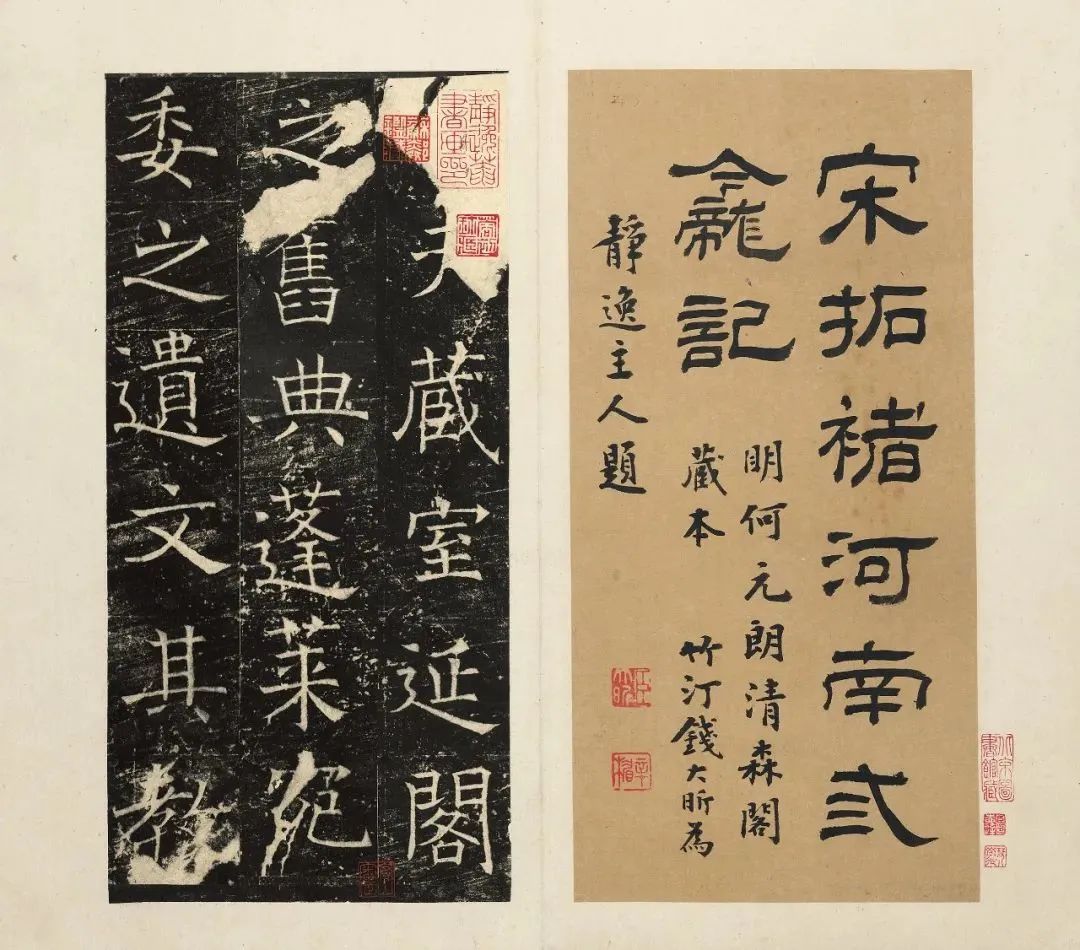 宋拓褚河南弎
龕記
明何元朗清森閣
藏本 竹汀錢大昕為
靜逸主人題
臣大昕
辛楣
藏室延閣
之舊典蓬萊宛
委之遺文其教